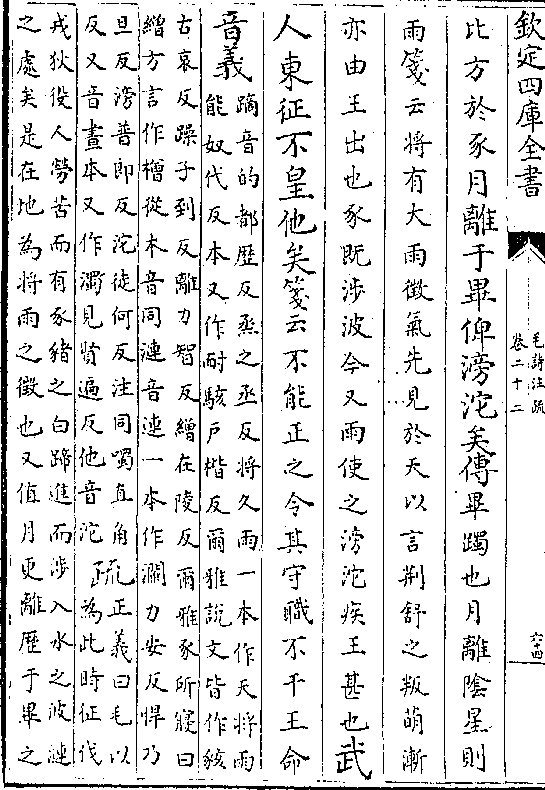 欽定四庫全書
毛詩注疏
卷二十二
六十四
比方於豕月離于畢俾滂沱矣傳畢躅也月離陰星則
雨箋云將有大雨徴氣先見於天以言荆舒之叛萌漸
亦由王出也豕既涉波今又雨使之滂沱疾王甚也武
人東征不皇他矣箋云不能正之令其守職不干王命
音義
蹢音的都歴反烝之丞反將久雨一本作天將雨
能奴代反本又作耐駭戸楷反爾雅說文皆作豥
古哀反躁子到反離力智反繒在陵反爾雅豕所寝曰
繒方言作橧從木音同漣音連一本作瀾力安反悍乃
旦反滂普郎反沱徒何反注同噣直角
反又音晝本又作濁見賢遍反他音沱
疏
正義曰毛以
為此時征伐
戎狄役人勞苦而有豕豬之白蹄進而涉入水之波漣
之處矣是在地為將雨之徴也又值月更離歴于畢之